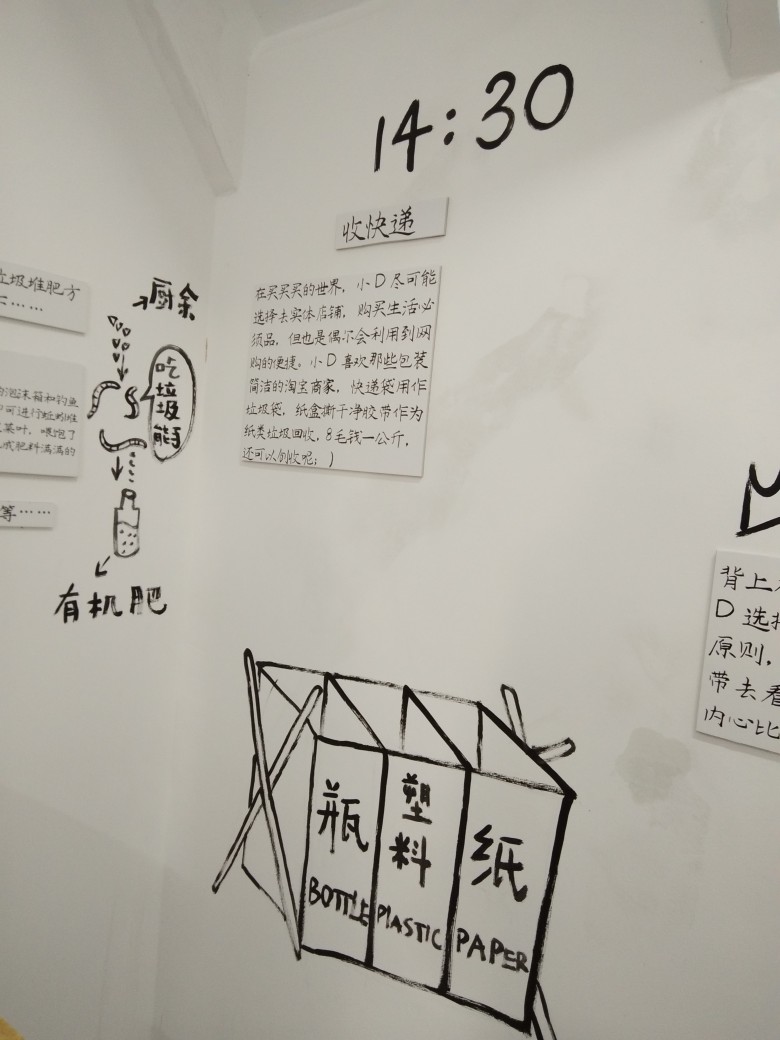 14:30
收快递
在买买买的世界，小D尽可能
选择去实体店铺，购买生活必
须品，但也是偶尔会利用到网
购的便捷。小D喜欢那些包装
简洁的淘宝商家，快递袋用作
垃圾袋，纸盒撕干净胶带作为
纸类垃圾回收，8毛钱一公斤，
还可以创收呢：)
垃圾堆肥方
……
的泡沫箱和钓鱼
可进行蚯蚓堆
菜叶，喂饱了
成肥料满满的
等……
厨余
吃
垃
圾
能手
有机肥
瓶
BOTTLE
塑
料
PLASTIC
纸
PAPER
背上
D 选择
原则，
带去看
内心比